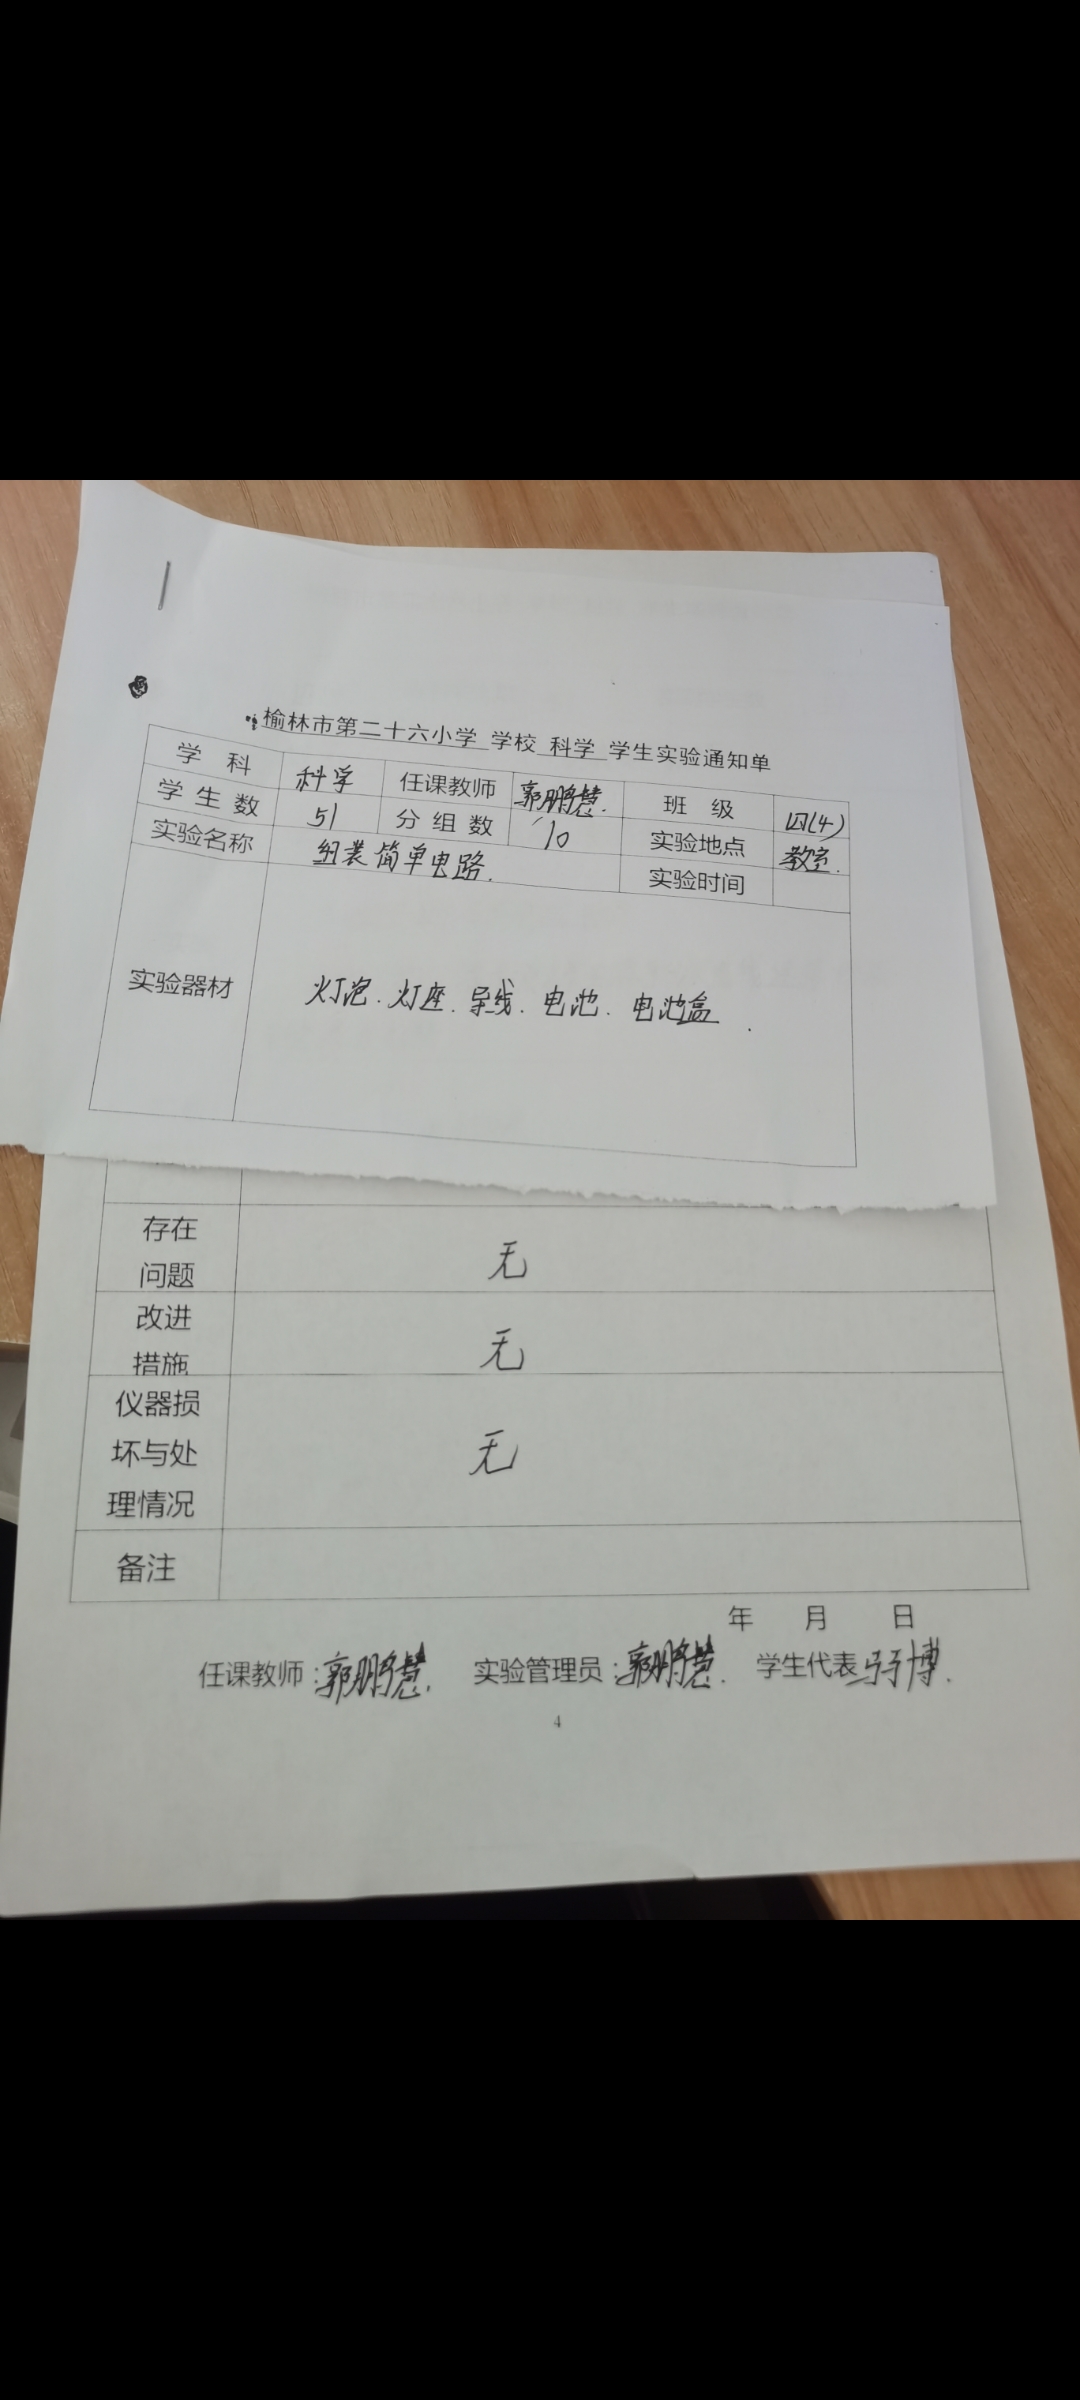 榆林市第二十六小学 学校 科学 学生实验通知单
学科 科学 任课教师 郭鹏慧. 班级 四(4)
学生数 51 分组数 10 实验地点 教室.
实验名称 组装简单电路. 实验时间
实验器材 灯泡.灯座.导线.电池.电池盒.
存在
问题 无
改进
措施 无
仪器损
坏与处 无
理情况
备注
年 月 日
任课教师:郭鹏慧. 实验管理员:郭鹏慧. 学生代表 博.
4